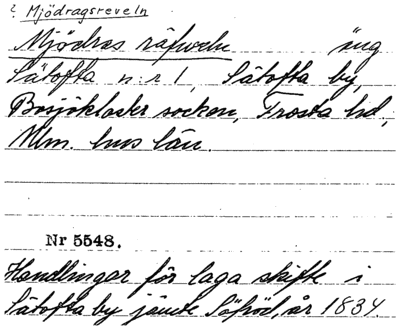 ? Mjödragsreveln
Mjödras räfveln äng
Sätofta n:r 1, Sätofta by,
Bosjökloster socken, Frosta hd,
Mlm. hus län.
Nr 5548.
Handlingar för laga skifte i
Sätofta by jämte år 1834.